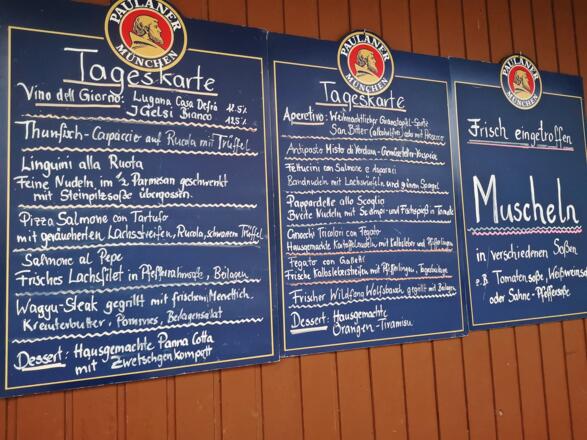 PAULANER
MÜNCHEN
Tageskarte
Vino dell Giorno: Lugana Casa Defrà 12.5%
I Gelsi Bianco 12.5%
Thunfisch-Carpaccio auf Rucola mit Trüffel
Linguini alla Ruota
Feine Nudeln im 1/2 Parmesan geschwenkt
mit Steinpilzsoße übergossen
Pizza Salmone con Tartufo
mit geräucherten Lachsstreifen, Rucola, schwarzem Trüffel
Salmone al Pepe
Frisches Lachsfilet in Pfefferrahmsoße, Beilagen
Wagyu-Steak gegrillt mit frischem Meerettich,
Kräuterbutter, Pommes, Beilagensalat
Dessert: Hausgemachte Panna Cotta
mit Zwetschgenkompott
PAULANER
MÜNCHEN
Tageskarte
Aperetivo: Weihnachtlicher Granatapfel-Spritz
San Bitter (alkoholfrei) oder mit Prosecco
Antipasto Misto di Verdura - Gemüse
Fettucini con Salmone e Asparagi
Bandnudeln mit Lachswürfeln und grünem Spargel
Pappardelle allo Scoglio
Breite Nudeln mit Scampi- und Fischspieß in Tomate
Gnocchi Tricolori con Fegato
Hausgemachte Kartoffelnudeln, mit Kalbsleber und Pfifferlingen
Fegato con
Frische Kalbsleberstreifen mit Pfifferlingen,
Frischer Wildfang Wolfsbarsch gegrillt mit Beilagen
Dessert: Hausgemachte
Orangen-Tiramisu
PAULANER
MÜNCHEN
Frisch eingetroffen
Muscheln
in verschiedenen Soßen
z.B. Tomatensoße, Weißweinsoße
oder Sahne-Pfeffersoße